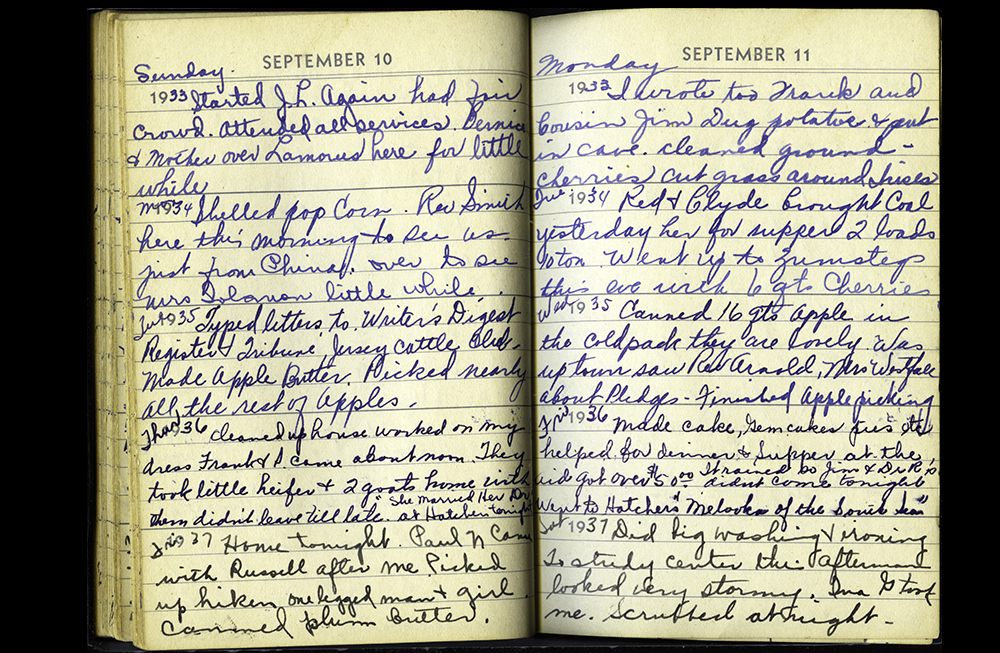 SEPTEMBER 10
Sunday.
1933 Started J.L. Again had fair
crowd. Attended all services. Bernice
& Mother over Lamorus here for little
while
1934 Shelled pop Corn. Rev Smith
here this morning to see us.
just from China. over to see
mrs little while.
1935 Typed letters to Writer's Digest
Register & Tribune, Jersey Cattle Club.
Made Apple Butter. Picked nearly
all the rest of Apples.
Thur 1936 cleaned up house worked on my
dress Frank & D. came about noon. They
took little heifer & 2 goats home with
"She Married Her
them didn't leave till late. at Hatchers tonight
Fri 1937 Home tonight. Paul N Came
with Russell after me Picked
up hiker, one legged man & girl.
Canned plum butter.
SEPTEMBER 11
Monday
1933 I wrote too and
cousin Jim Dug potatoe & put
in cave. cleaned ground-
cherries cut grass around Irises
Tue 1934 Red & Clyde brought Coal
yesterday her for supper 2 loads
ton. Went up to Zumstegs
this eve with 6 qts Cherries
Wed 1935 Canned 16 qts apple in
the coldpack they are lovely. Was
up town saw Rev Arnold, Mrs Westfall
about Pledges - Finished Apple picking
Fri 1936 Made cake, Gem cakes
helped for dinner & Supper at the
got over $50.00 It rained so Jim &
didn't come tonight
Went to Hatchers "of the South Seas"
Sat 1937 Did big washing & ironing
To study center this afternoon
looked very stormy. Ina G took
me. Scrubbed at night -